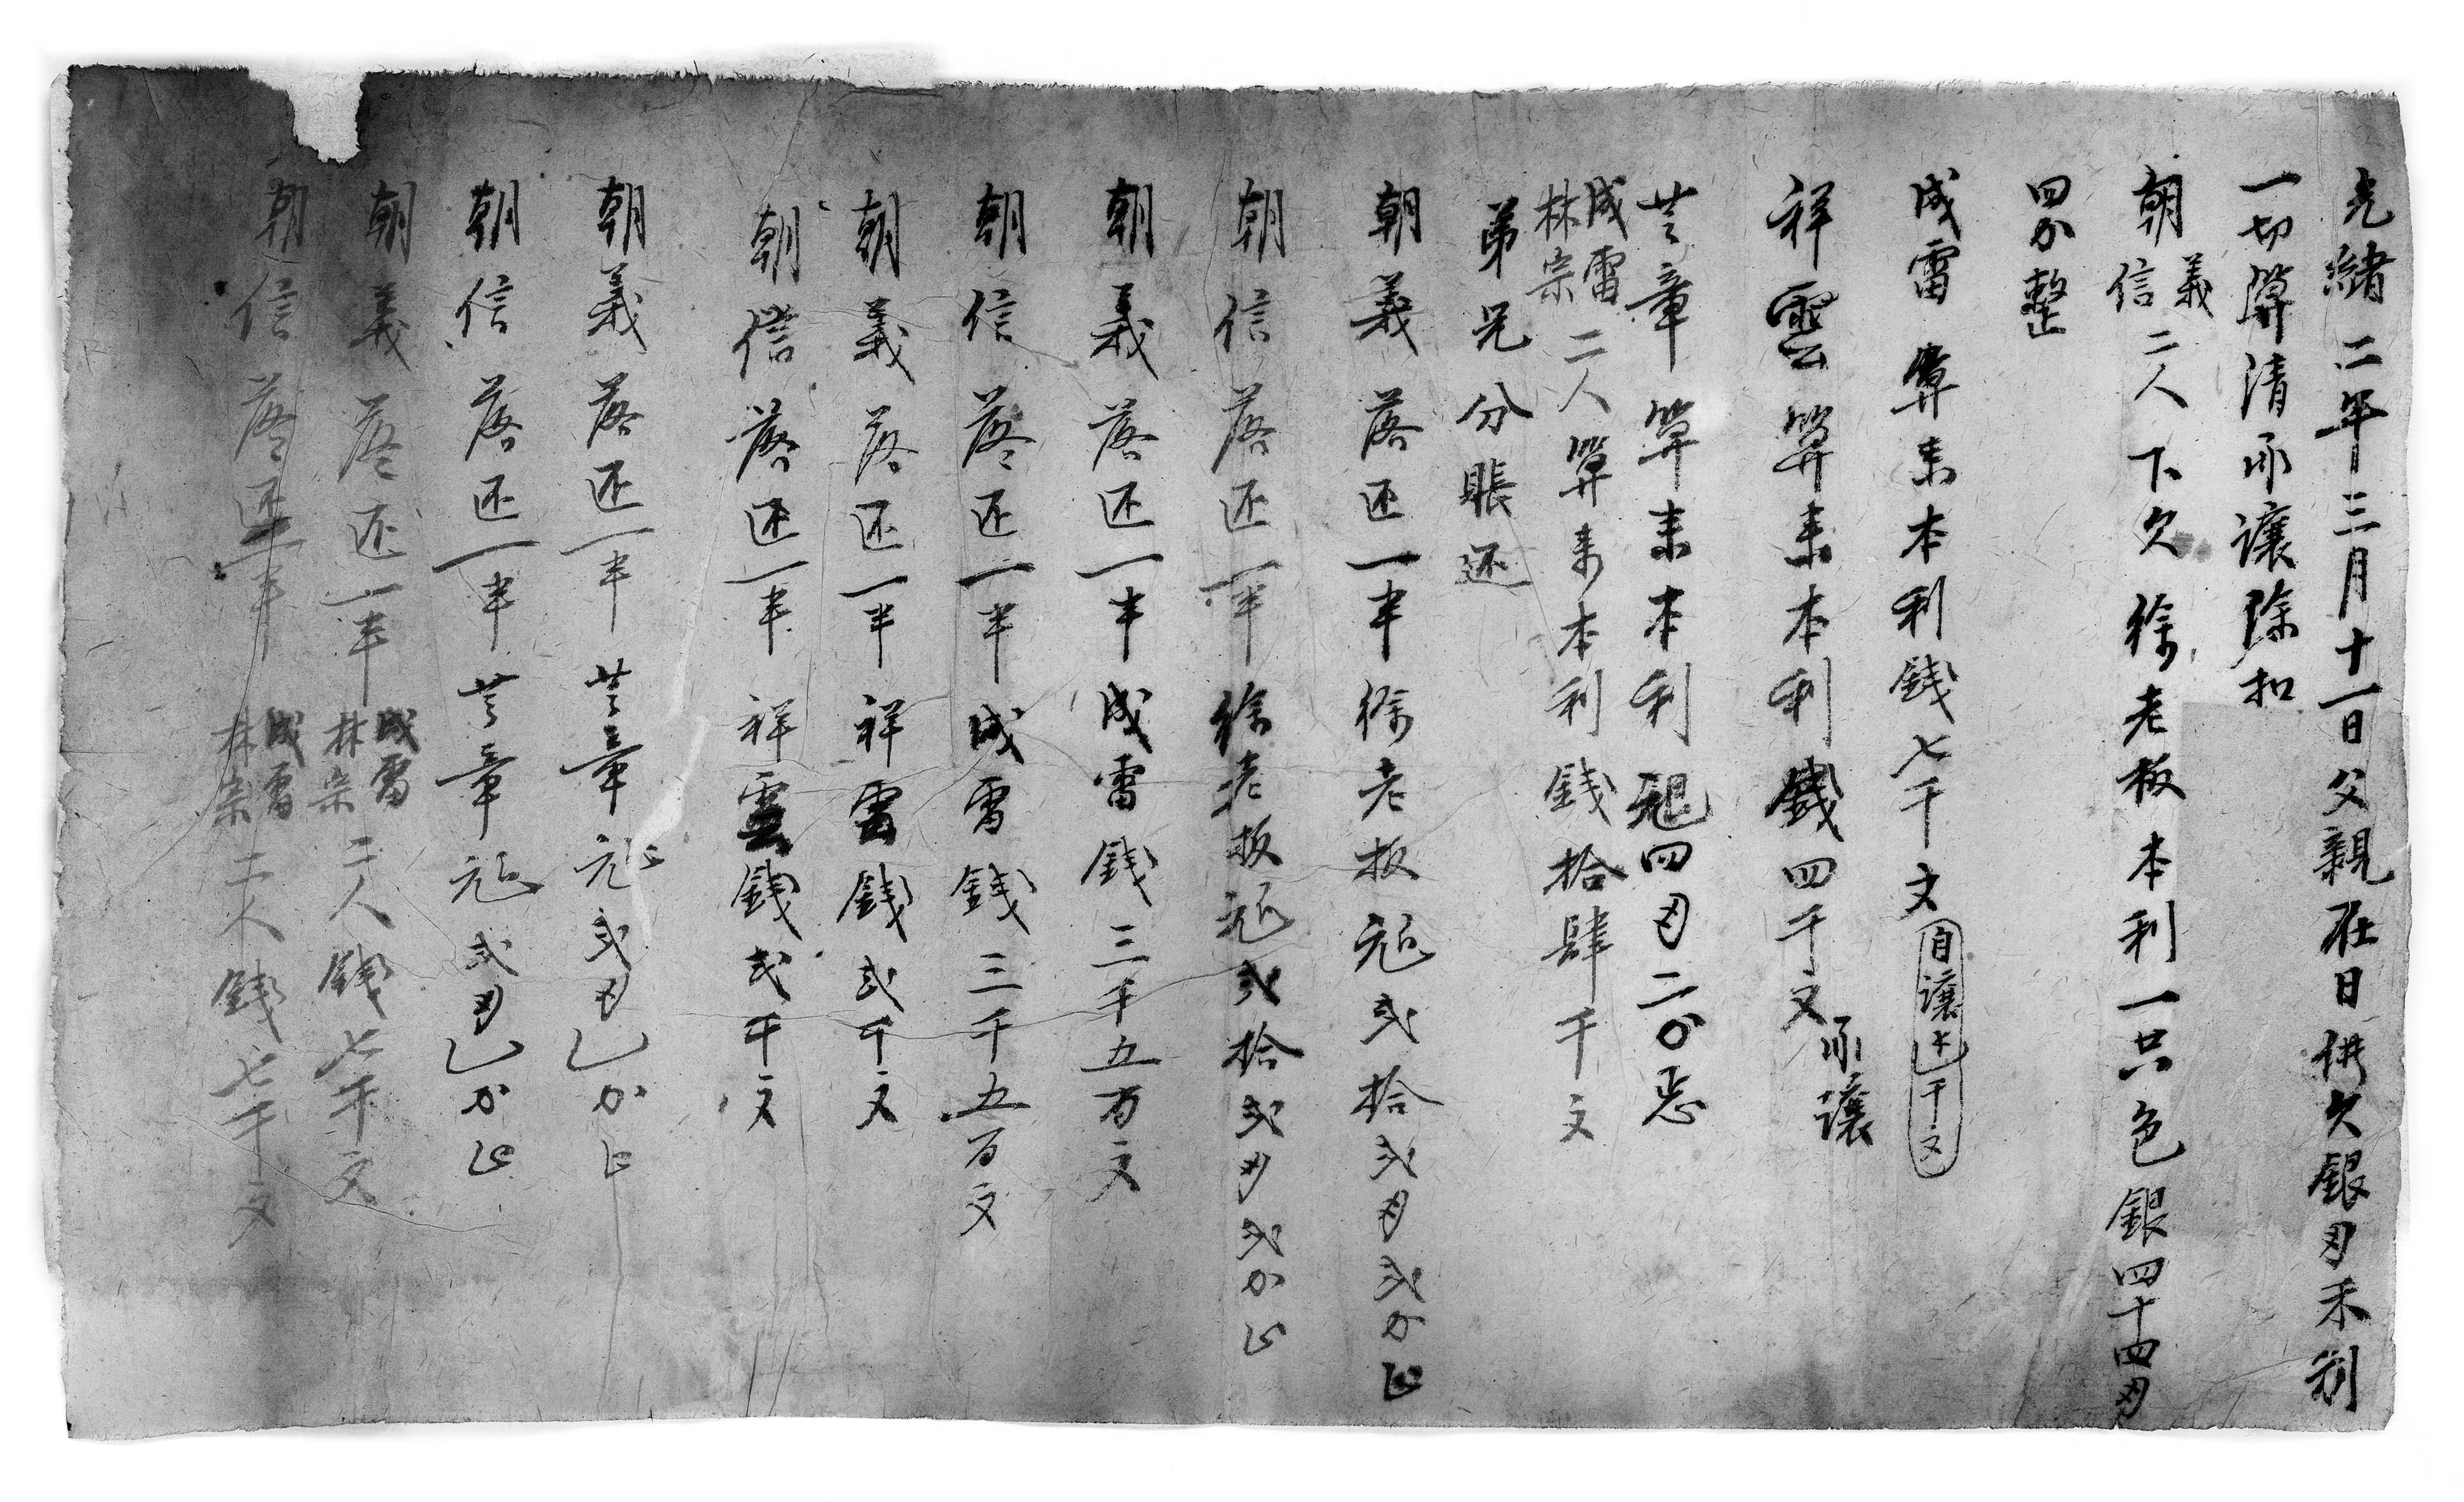 光緒二年三月十一日父親在日借欠銀両禾利
一切算清承讓除扣
朝義信二人下欠徐老板本利一只色銀四十四両
四分整
成雷算来本利錢七千文自讓七千文
祥雲算来本利錢四千文承讓
芸章算来本利四両二分
成雷林宗二人算来本利錢拾肆千文
弟兄分賬还
朝義落还一半徐老板弍拾弍両弍分正
朝信落还一半徐老板弍拾弍両弍分正
朝義落还一半成雷錢三千五百文
朝信落还一半成雷錢三千五百文
朝義落还一半祥雲錢弍千文
朝信落还一半祥雲錢弍千文
朝義落还一半芸章弍両乙分正
朝信落还一半芸章弍両乙分正
朝義落还一半成雷林宗二人錢七千文
朝信落还一半成雷林宗二人錢七千文